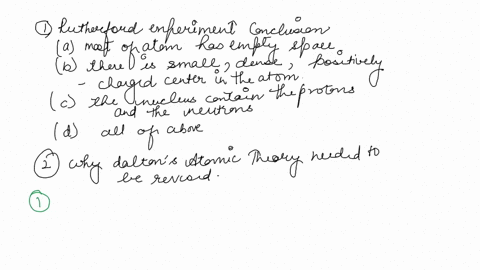 ① Rutherford experiment Conclusion
(a) most of atom has empty space
(b) there is small, dense, positively
- charged center in the atom.
(c) the nucleus contain the protons
and the neutrons
(d) all of above
② Why dalton's Atomic Theory needed to
be revised.
①